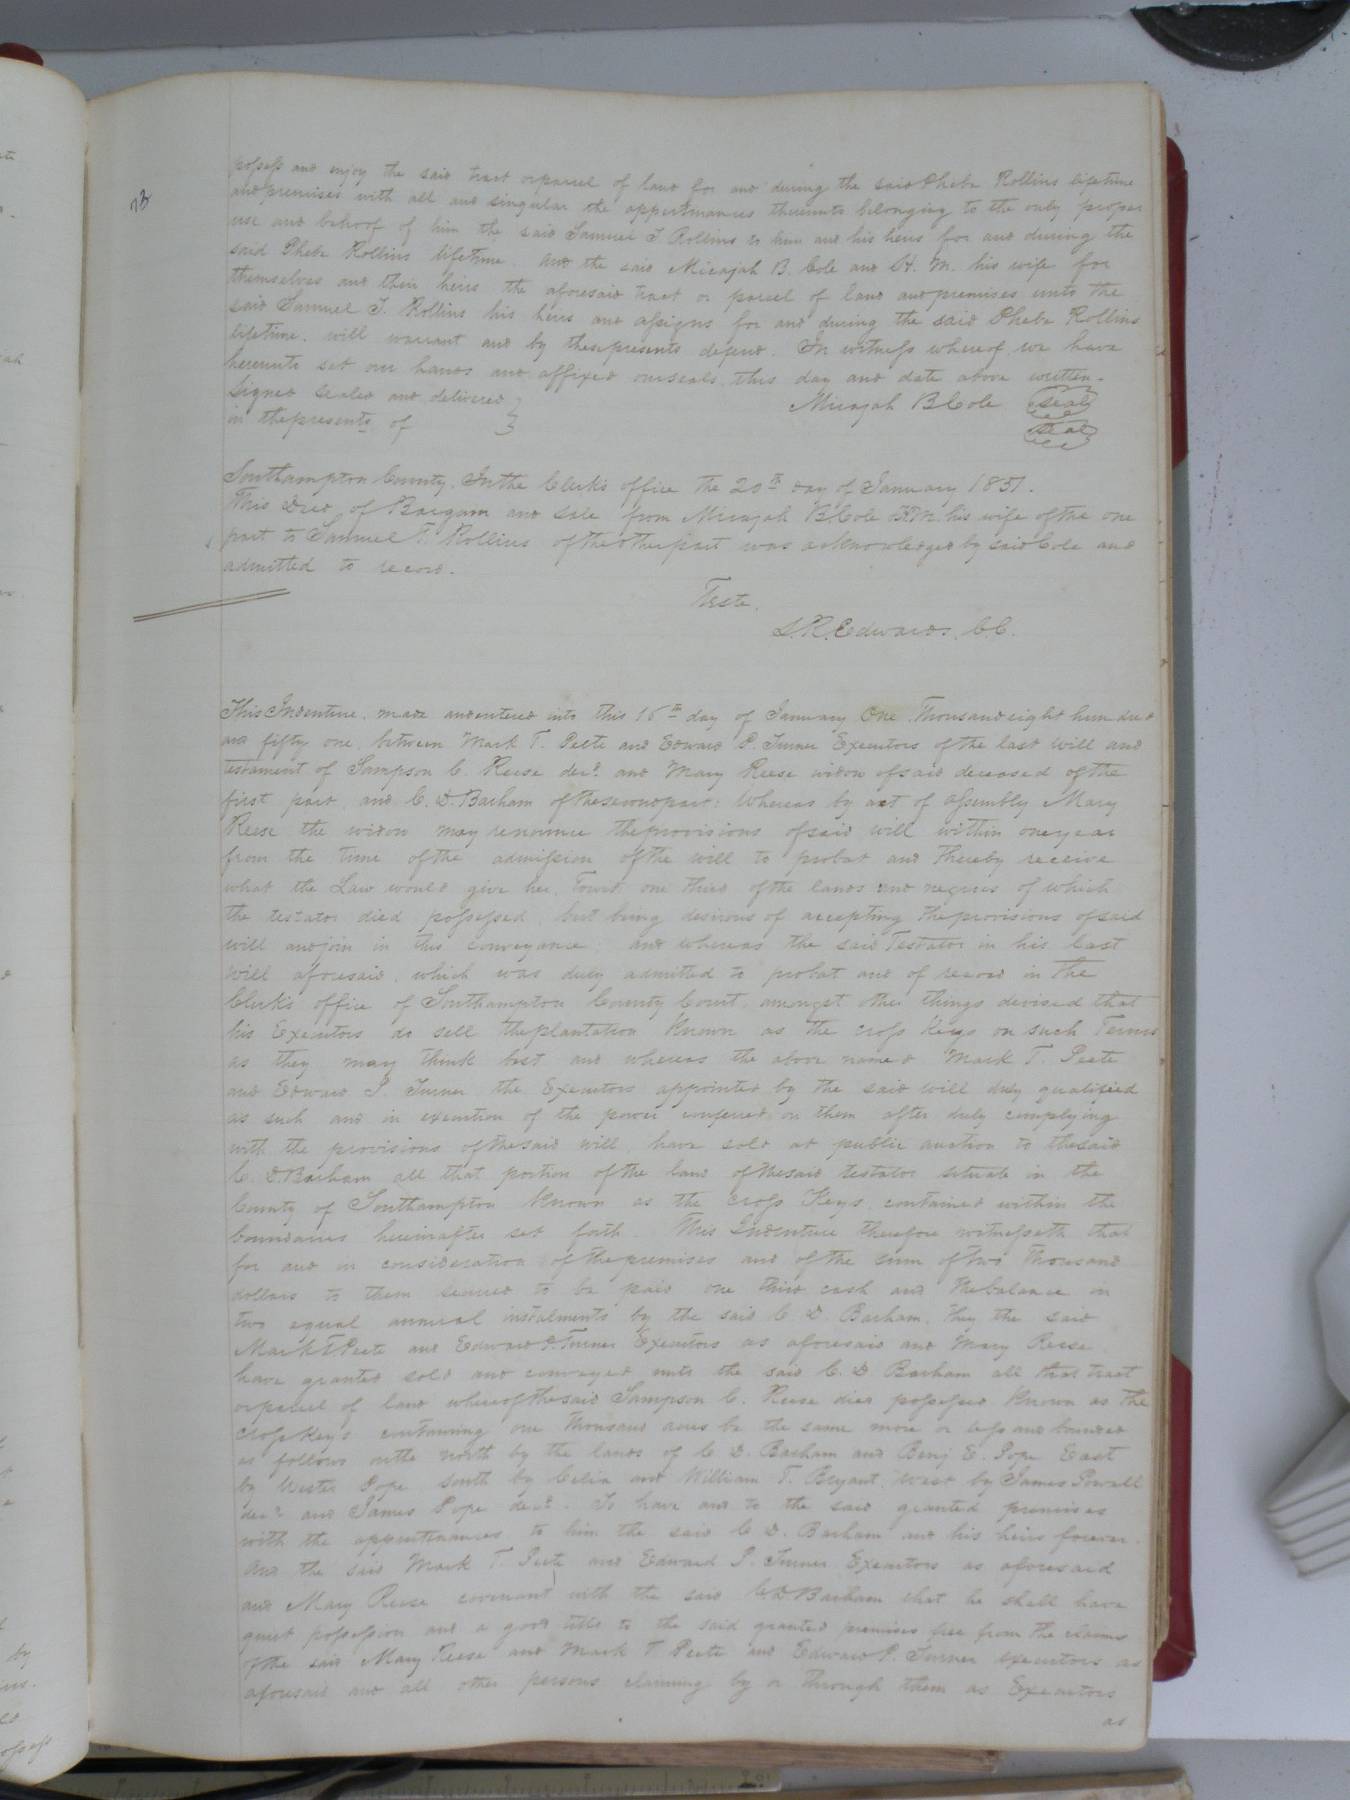 73
possess and enjoy the said tract or parcel of land for and during the said Pheba Rollins lifetime
and premises with all and singular the appertinances thereunto belonging to the only proper
use and behoof of him the said Samuel T Rollins to him and his heirs for and during the
said Pheba Rollins lifetime. And the said Micajah B. Cole and H. M. his wife for
themselves and their heirs the aforesaid tract or parcel of land and premises unto the
said Samuel T. Rollins his heirs and assigns for and during the said Pheba Rollins
lifetime. will warrant and by these presents defend. In witness whereof we have
hereunto set our hands and affixed our seals this day and date above written.
Signed sealed and delivered } Micajah B Cole seal
in the presents of } seal
Southampton County. In the Clerk's office the 20th day of January 1851.
This Deed of Bargain and sale from Micajah B Cole & H M. his wife of the one
part to Samuel T. Rollins of the other part was acknowledged by said Cole and
admitted to record.
Teste.
L. R. Edwards. C.C.
This Indenture. made and entered into this 16th day of January One Thousand eight hundred
and fifty one between Mark T. Peete and Edward P. Turner Executors of the last will and
testament of Sampson C. Reese decd. and Mary Reese widow of said deceased of the
first part and C. D. Barham of the second part: Whereas by act of Assembly Mary
Reese the widow may renounce the provisions of said will within one year
from the time of the admission of the will to probat and thereby receive
what the Law would give her. Towit, one third of the lands and negroes of which
the testator died possessed, but being desirous of accepting the provisions of said
will and join in this conveyance: and whereas the said Testator in his last
will aforesaid, which was duly admitted to probat and of record in the
Clerk's office of Southampton County Court, amongst other things devised that
his Executors do sell the plantation Known as the cross Keys on such Terms
as they may think best and whereas the above named Mark T. Peete
and Edward P. Turner the Executors appointed by the said will duly qualified
as such and in execution of the power conferred on them after duly complying
with the provisions of the said will, have sold at public auction to the said
C. D. Barham all that portion of the land of the said testator situate in the
County of Southampton Known as the Cross Keys, contained within the
boundaries hereinafter set forth. This Indenture therefore witnesseth that
for and in consideration of the premises and of the sum of two thousand
dollars to them secured to be paid one third cash and the balance in
two equal annual instalments by the said C. D. Barham, they the said
Mark T. Peete and Edward P. Turner Executors as aforesaid and Mary Reese
have granted sold and conveyed unto the said C. D Barham all that tract
or parcel of land whereof the said Sampson C. Reese died possessed Known as the
Cross Keys containing one thousand acres be the same more or less and bounded
as follows on the north by the lands of C. D. Barham and Benj E. Pope East
by Pope South by Celia and William T. Bryant, West by James Powell
decd. and James Pope decd. To have and to the said granted premises
with the appurtenances to him the said C. D. Barham and his heirs forever.
And the said Mark T. Peete and Edward P. Turner Executors as aforesaid
and Mary Reese covenant with the said C. D. Barham that he shall have
quiet possession and a good title to the said granted premises free from the claims
of the said Mary Reese and Mark T Peete and Edward P. Turner executors as
aforesaid and all other persons claiming by or through them as Executors
as